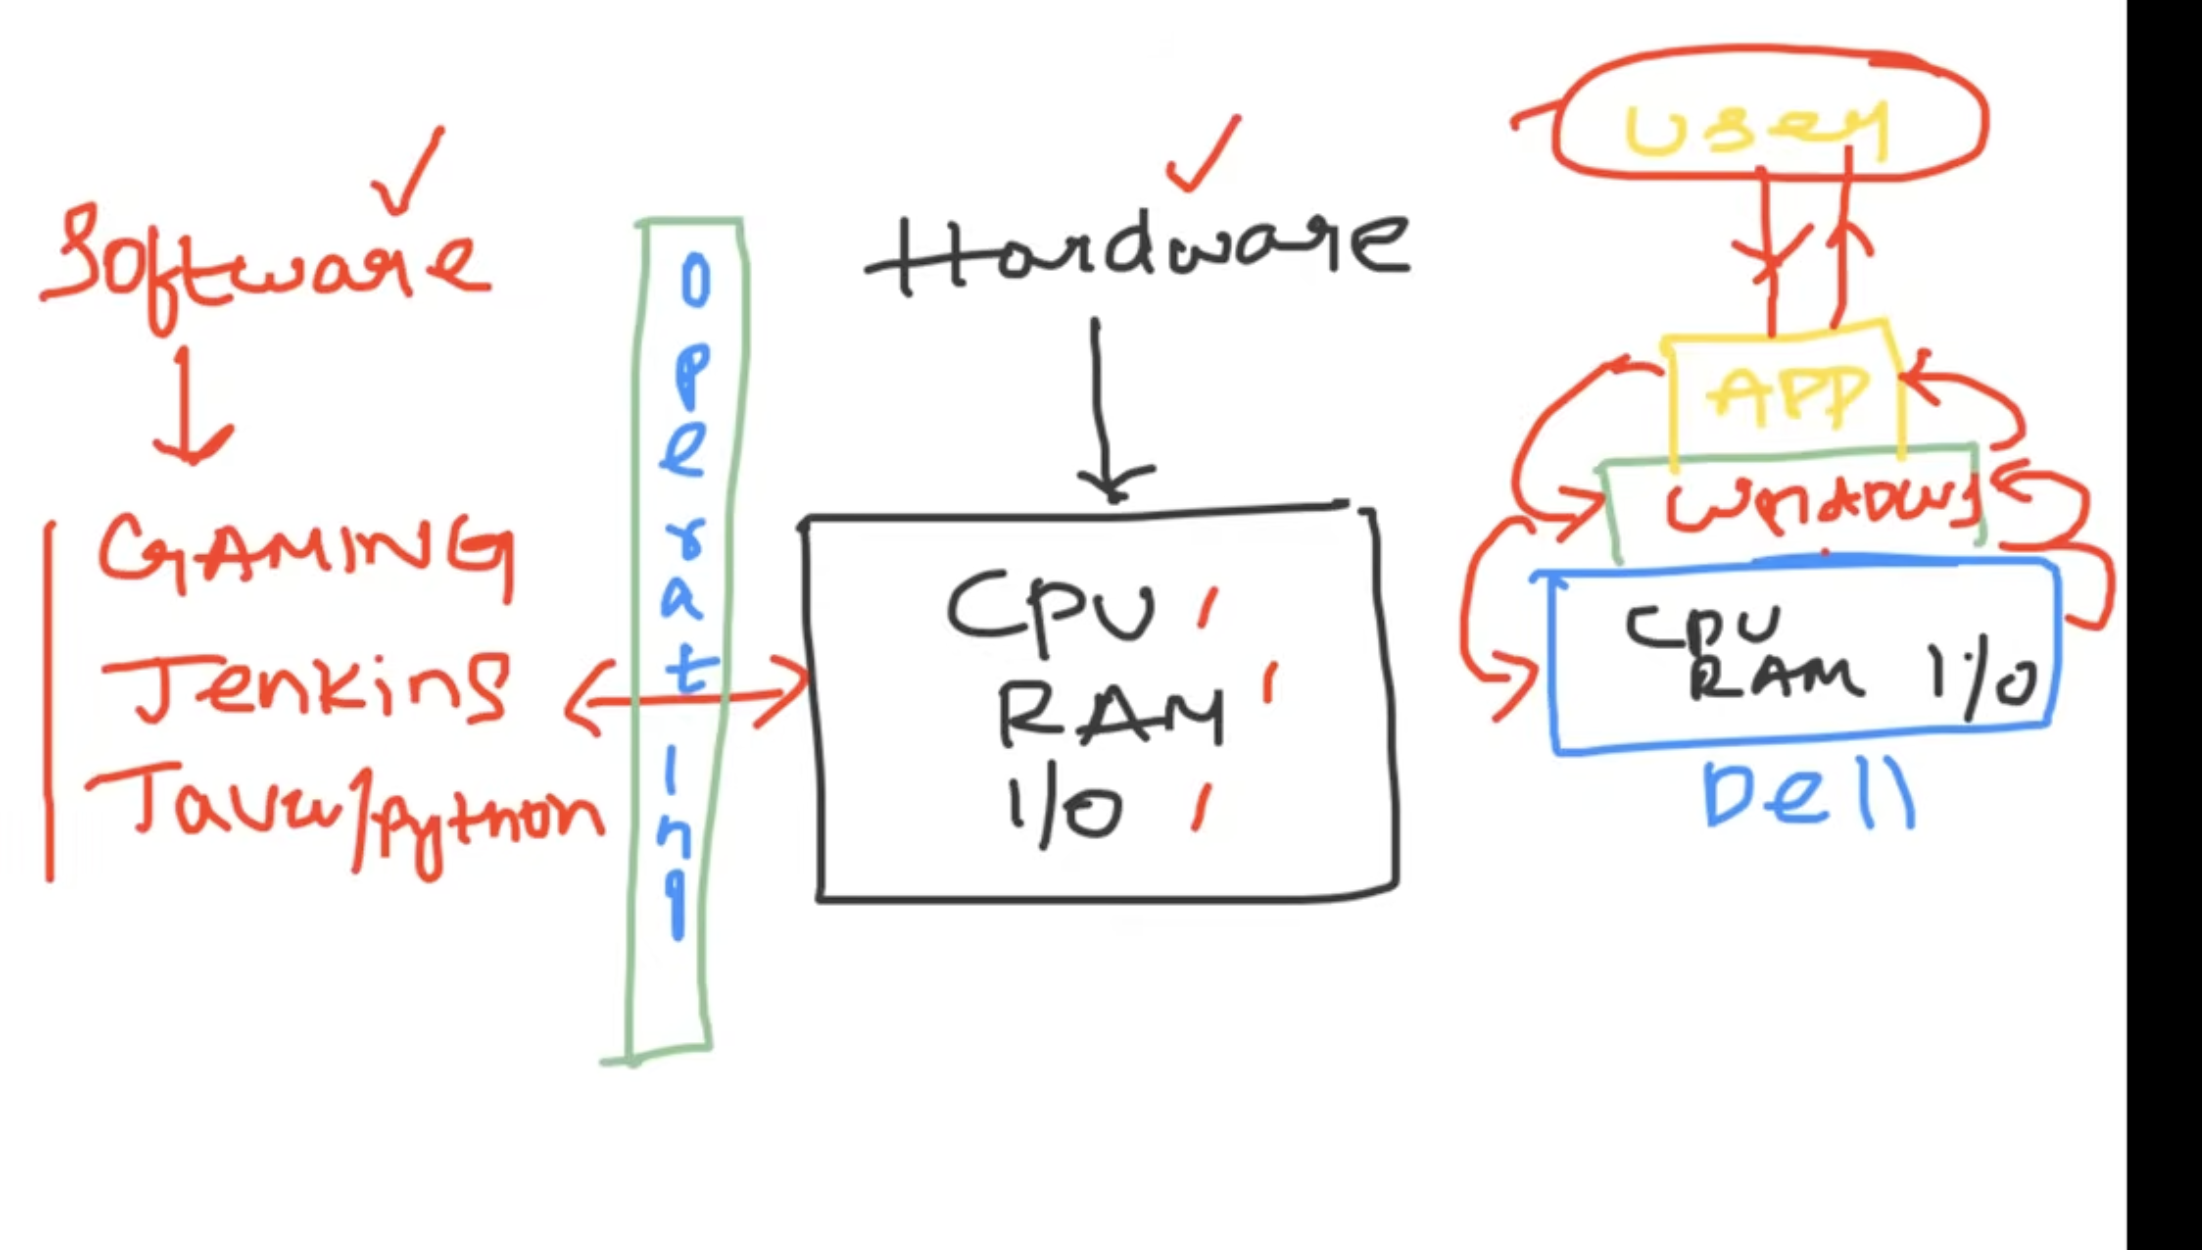 Software
GAMING
Jenkins
Java/python
Operating
Hardware
CPU
RAM
I/O
User
APP
windows
CPU
RAM I/O
Dell